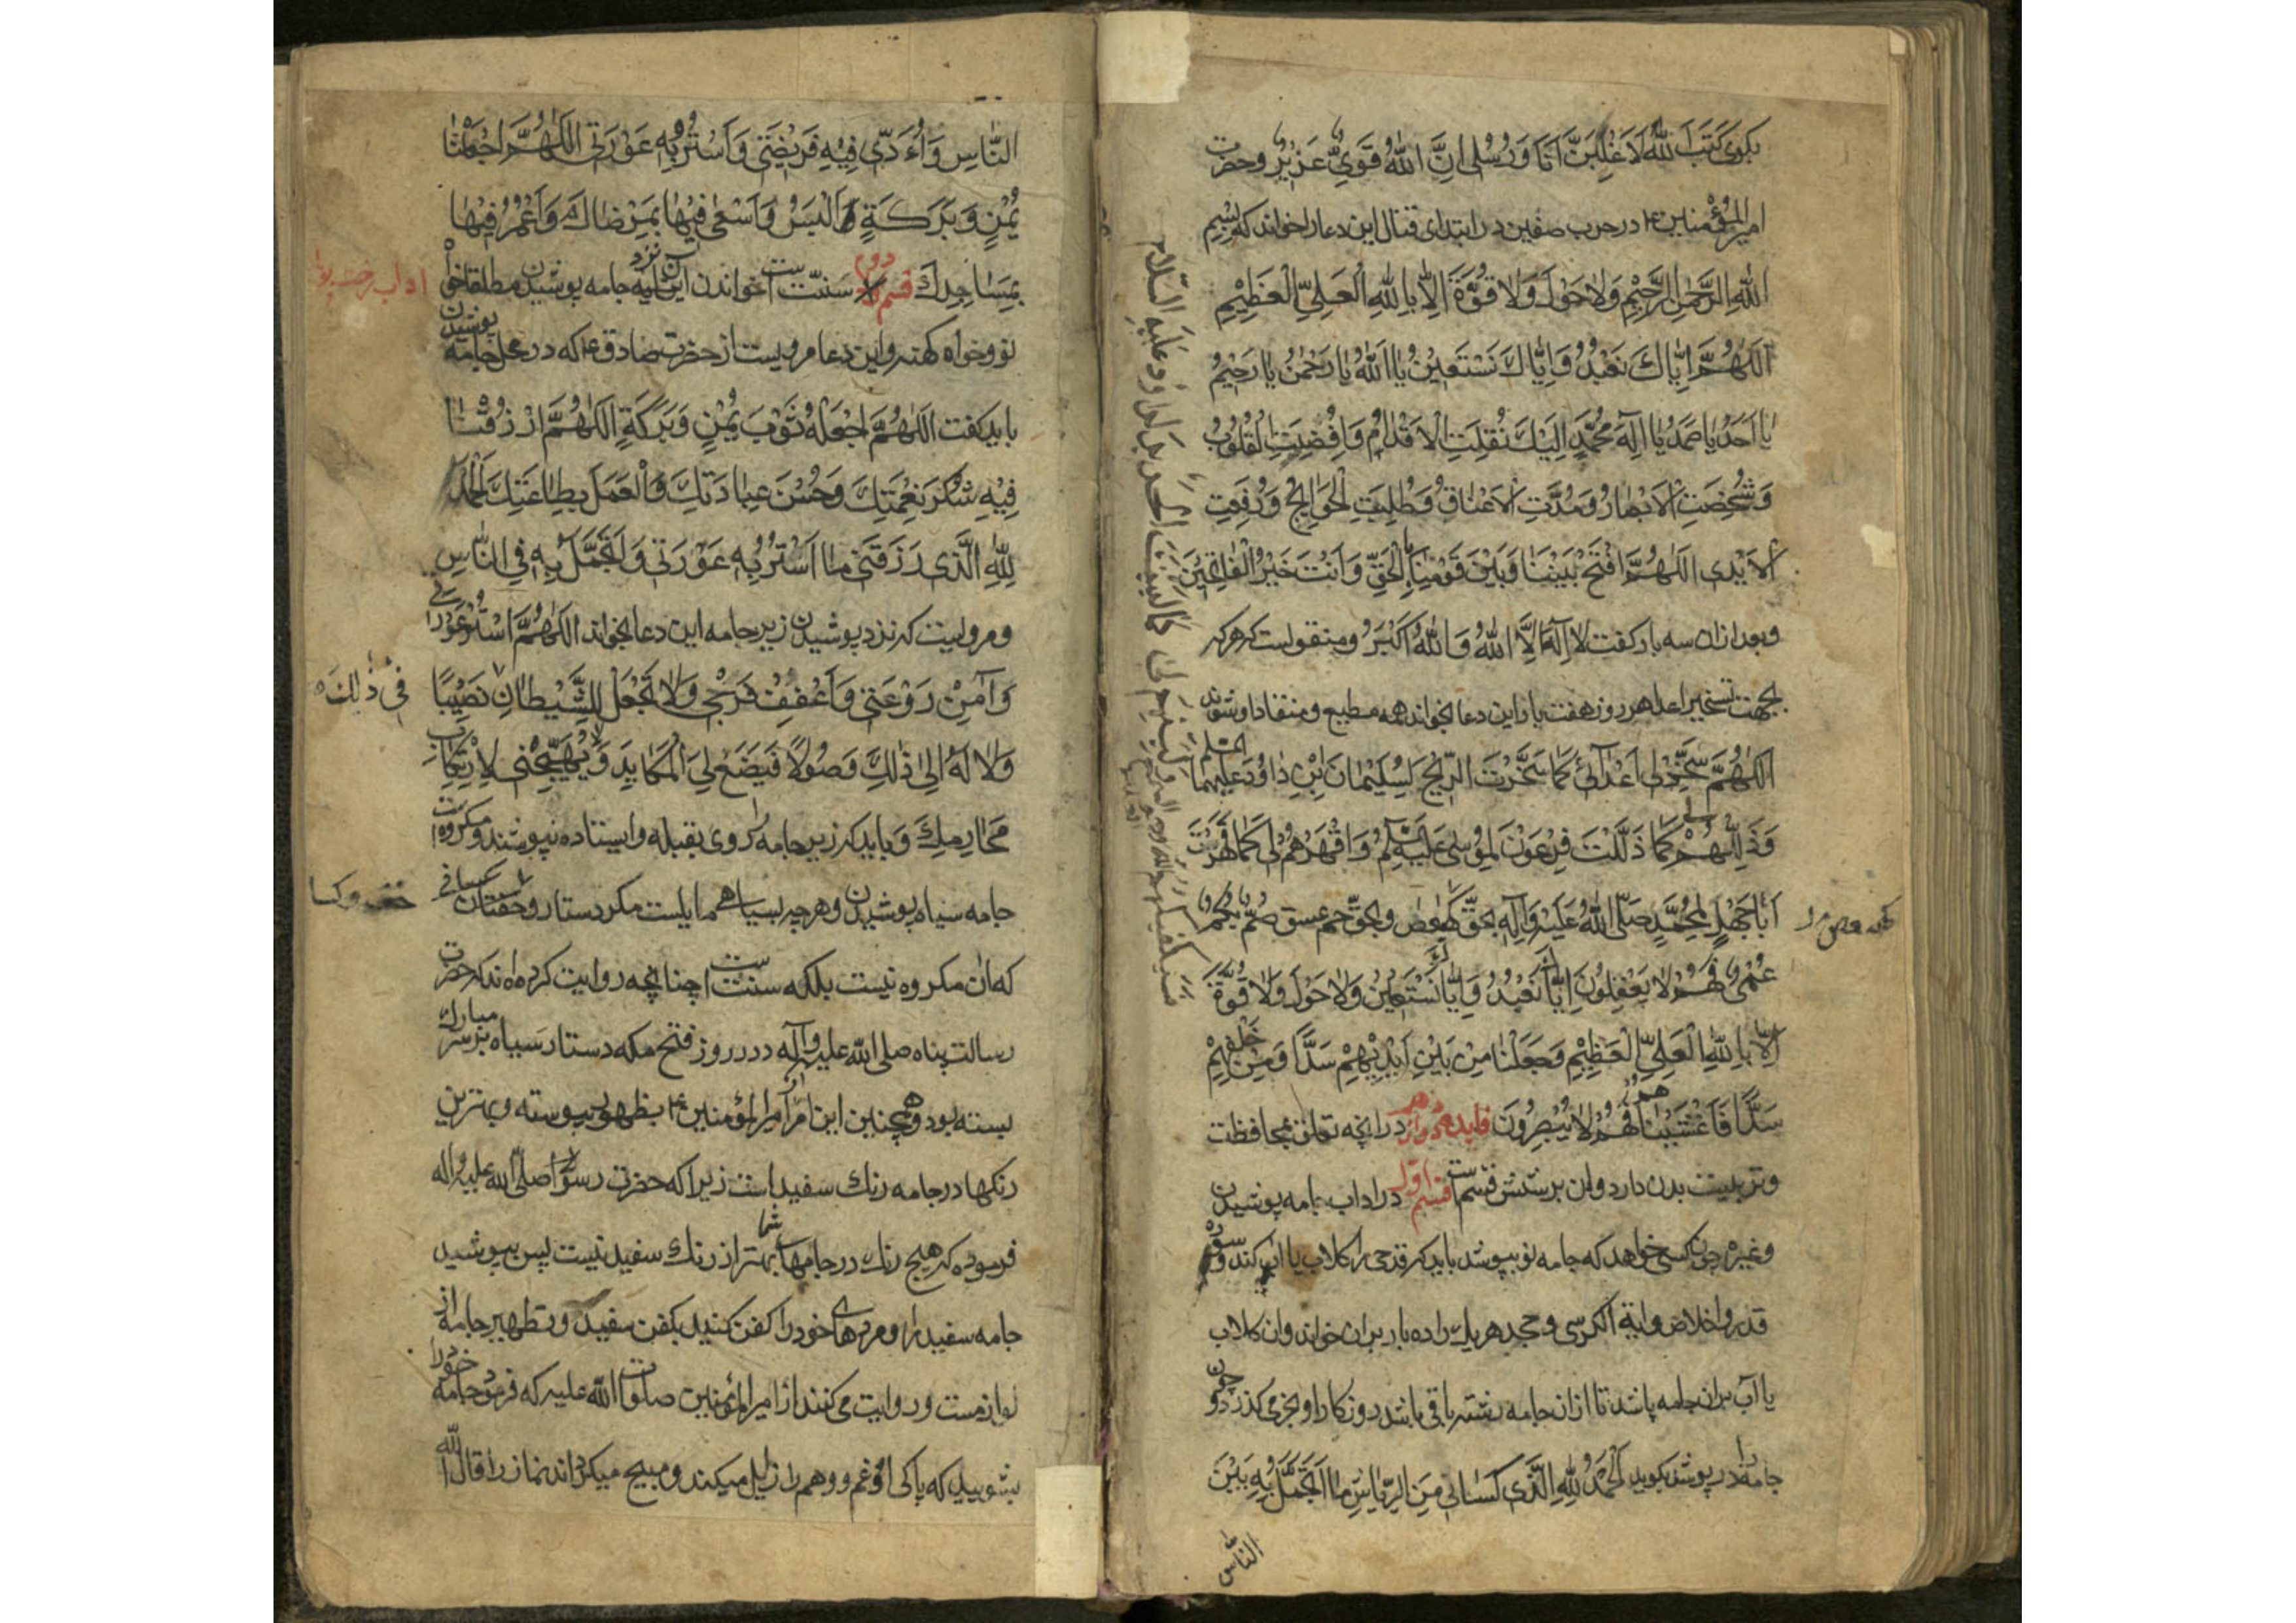 بکوی کَتَبَ اللّٰهُ لَاَغْلِبَنَّ اَنَا وَ رُسُلی اِنَّ اللّٰهَ قَوِیٌّ عَزِیزٌ و حضرت
امیرالمؤمنین ع در حرب صفین در ابتدای قتال این دعا را خواند که بِسْمِ
اللّٰهِ الرَّحْمٰنِ الرَّحِیْمِ وَلَا حَوْلَ وَلَا قُوَّةَ اِلَّا بِاللّٰهِ الْعَلِیِّ الْعَظِیْمِ
اَللّٰهُمَّ اِیَّاكَ نَعْبُدُ وَاِیَّاكَ نَسْتَعِیْنُ یَا اَللّٰهُ یَا رَحْمٰنُ یَا رَحِیْمُ
یَا اَحَدُ یَا صَمَدُ یَا اِلٰهَ مُحَمَّدٍ اِلَیْكَ نُقِلَتِ الْاَقْدَامُ وَاُفْضِیَتِ الْقُلُوبُ
وَشُخِصَتِ الْاَبْصَارُ وَمُدَّتِ الْاَعْنَاقُ وَطُلِبَتِ الْحَوَایِجُ وَرُفِعَتِ
الْاَیْدِی اَللّٰهُمَّ افْتَحْ بَیْنَنَا وَبَیْنَ قَوْمِنَا بِالْحَقِّ وَاَنْتَ خَیْرُ الْفَاتِحِیْنَ
و بعد ازان سه بار کفت لَا اِلٰهَ اِلَّا اللّٰهُ وَاللّٰهُ اَکْبَرُ و منقولست که هرکه
بجهت تسخیر اعدا هر روز هفت بار این دعا بخواند همه مطیع و منقاد او شوند
اَللّٰهُمَّ سَخِّرْ لِی اَعْدَائِی کَمَا سَخَّرْتَ الرِّیْحَ لِسُلَیْمَانَ بْنِ دَاوُدَ عَلَیْهِمَا السّلم
وَذَلِّلْهُمْ لی کَمَا ذَلَّلْتَ فِرْعَوْنَ لِمُوسٰی عَلَیْهِ السَّلم وَاقْهَرْهُمْ لِی کَمَا قَهَرْتَ
اَبَا جَهْلٍ لِمُحَمَّدٍ صَلَّی اللّٰهُ عَلَیْهِ وَاٰلِهِ بِحَقِّ کهیعص وبحقّ حمعسق صُمٌّ بُکْمٌ
عُمْیٌ فَهُمْ لَا یَعْقِلُونَ اِیَّاكَ نَعْبُدُ وَاِیَّاكَ نَسْتَعِیْنُ وَلَا حَوْلَ وَلَا قُوَّةَ
اِلَّا بِاللّٰهِ الْعَلِیِّ الْعَظِیْمِ وَجَعَلْنَا مِنْ بَیْنِ اَیْدِیْهِمْ سَدًّا وَمِنْ خَلْفِهِمْ
سَدًّا فَاَغْشَیْنَاهُمْ فَهُمْ لَا یُبْصِرُونَ فایده دوازدهم در انچه تعلق بمحافظت
و تربیت بدن دارد و ان بر شش قسمست قسم اول در اداب جامه پوشیدن
و غیره چون کسی خواهد که جامه نو بپوشد باید که قدحی را کلاب یا اب کند و سوره
قدر و اخلاص و ایة الکرسی و جحد هر یك را ده بار بران خواند و ان کلاب
یا آب بران جامه پاشد تا ازان جامه رشته باقی باشد روزکار او بخرمی کذرد و چون
جامه را در پوشد بکوید اَلْحَمْدُ لِلّٰهِ الَّذِی کَسَانِی مِنَ الرِّیَاشِ مَا اَتَجَمَّلُ بِهِ بَیْنَ
النّاس
النَّاسِ وَاُؤَدِّی فِیْهِ فَرِیْضَتِی وَاَسْتُرُ بِهِ عَوْرَتِی اَللّٰهُمَّ اجْعَلْهَا
یُمْنٍ وَبَرَکَةٍ اَلْبَسُ وَاَسْعٰی فِیْهَا بِمَرْضَاتِكَ وَاَعْمُرُ فِیْهَا
بِمَسَاجِدِكَ قسم دوم سنّتست خواندن این ادعیه نزد جامه پوشیدن مطلقا خواه
اداب رخت
نو و خواه کهنه و این دعا مرویست از حضرت صادق ع که در محل جامه پوشیدن
باید کفت اَللّٰهُمَّ اجْعَلْهُ ثَوْبَ یُمْنٍ وَبَرَکَةٍ اَللّٰهُمَّ ارْزُقْنَا
فِیْهِ شُکْرَ نِعْمَتِكَ وَحُسْنَ عِبَادَتِكَ وَالْعَمَلَ بِطَاعَتِكَ اَلْحَمْدُ
لِلّٰهِ الَّذِی رَزَقَنِی مَا اَسْتُرُ بِهِ عَوْرَتِی وَاَتَجَمَّلُ بِهِ فِی النَّاسِ
و مرویست که نزد پوشیدن زیر جامه این دعا بخواند اَللّٰهُمَّ اسْتُرْ عَوْرَتِی
وَاٰمِنْ رَوْعَتِی وَاَعْفِفْ فَرْجِی وَلَا تَجْعَلْ لِلشَّیْطَانِ نَصِیْبًا
فی ذٰلِكَ
وَلَا لَهُ اِلٰی ذٰلِكَ وَصُولًا فَیَضَعَ لِیَ الْمَکَایِدَ وَیُهَیِّجَنِی لِاِرْتِکَابِ
مَحَارِمِكَ و باید که زیر جامه را روی بقبله و ایستاده نپوشند و مکروهست
جامه سیاه پوشیدن و هرچه بسیاهی مایلست مکر دستار و خفتان
خف و کسا
که ان مکروه نیست بلکه سنتست چنانچه روایت کرده اند که حضرت
رسالت پناه صلی اللّه علیه وآله در روز فتح مکه دستار سیاه بر سر مبارك
بسته بود و همچنین این امر از امیرالمؤمنین ع بظهور پیوسته و بهترین
رنکها در جامه رنك سفید است زیرا که حضرت رسول صلّی اللّه علیه واله
فرموده که هیچ رنك در جامهای شما بهتر از رنك سفید نیست پس بپوشید
جامه سفید را و مردهای خود را کفن کنید بکفن سفید و تطهیر جامه از
لوازمست و روایت می کنند از امیرالمؤمنین صلوات اللّه علیه که فرمود جامه خود را
بشویید که پاکی او غم و وهم را زایل میکند و مبیح میکرداند نماز را قال اللّه